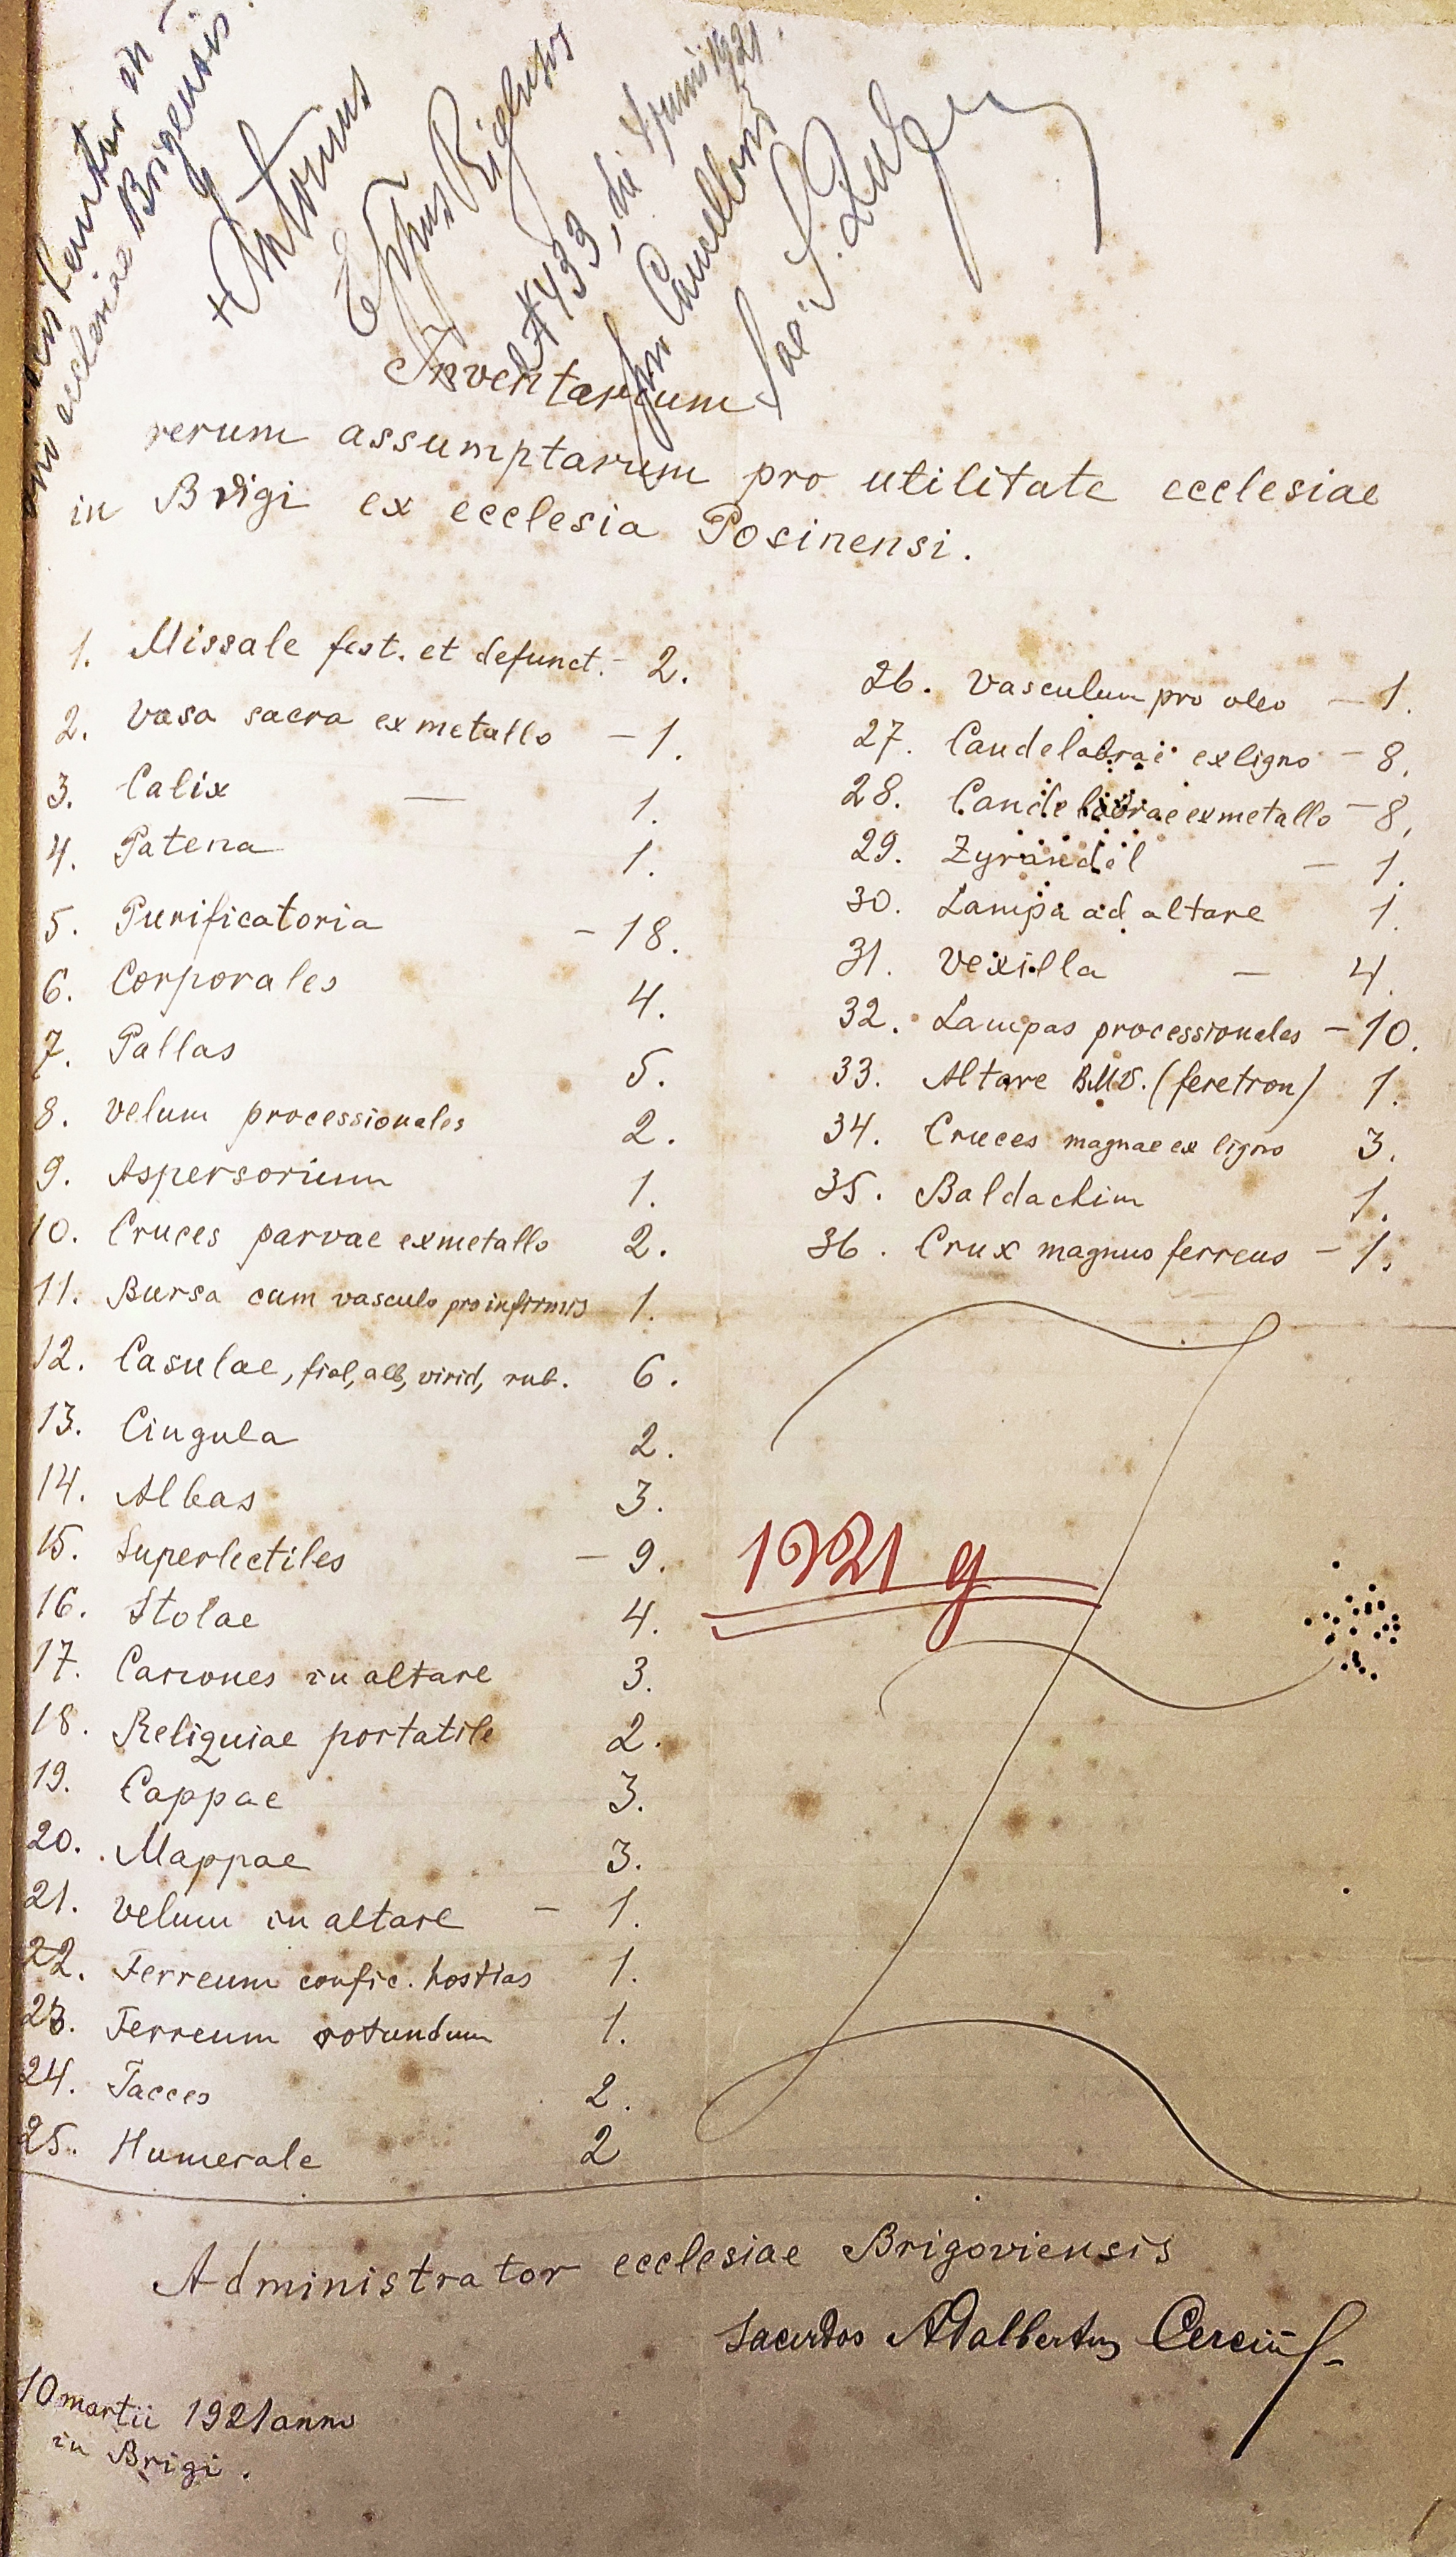 ecclesiae Brigensis.
+ Antonius
Eppus Rigensis
№ 433, die 4 junii 1921.
pro Cancellario
Sac. S.
Inventarium
rerum assumptarum pro utilitate ecclesiae
in Brigi ex ecclesia Posinensi.
1. Missale fest. et defunct. - 2.
2. Vasa sacra ex metallo - 1.
3. Calix — 1.
4. Patena 1.
5. Purificatoria - 18.
6. Corporales 4.
7. Pallas 5.
8. Velum processionales 2.
9. Aspersorium 1.
10. Cruces parvae ex metallo 2.
11. Bursa cum vasculo pro infirmis 1.
12. Casulae, fiol, alb, virid, rub. 6.
13. Cingula 2.
14. Albas 3.
15. Superlectiles - 9.
16. Stolae 4.
17. Canones in altare 3.
18. Reliquiae portatile 2.
19. Cappae 3.
20. Mappae 3.
21. Velum in altare - 1.
22. Ferreum confic. hostias 1.
23. Ferreum rotundum 1.
24. Facces 2.
25. Humerale 2
26. Vasculum pro oleo - 1.
27. Candelabrae ex ligno - 8.
28. Candelabrae ex metallo - 8.
29. Zyrandel - 1.
30. Lampa ad altare 1.
31. Vexilla - 4.
32. Lampas processionales - 10.
33. Altare B.M.V. (feretron) 1.
34. Cruces magnae ex ligno 3.
35. Baldachim 1.
36. Crux magnus ferreus - 1.
1921 g
Administrator ecclesiae Brigoviensis
Sacerdos Adalbertus
10 martii 1921 anno
in Brigi.